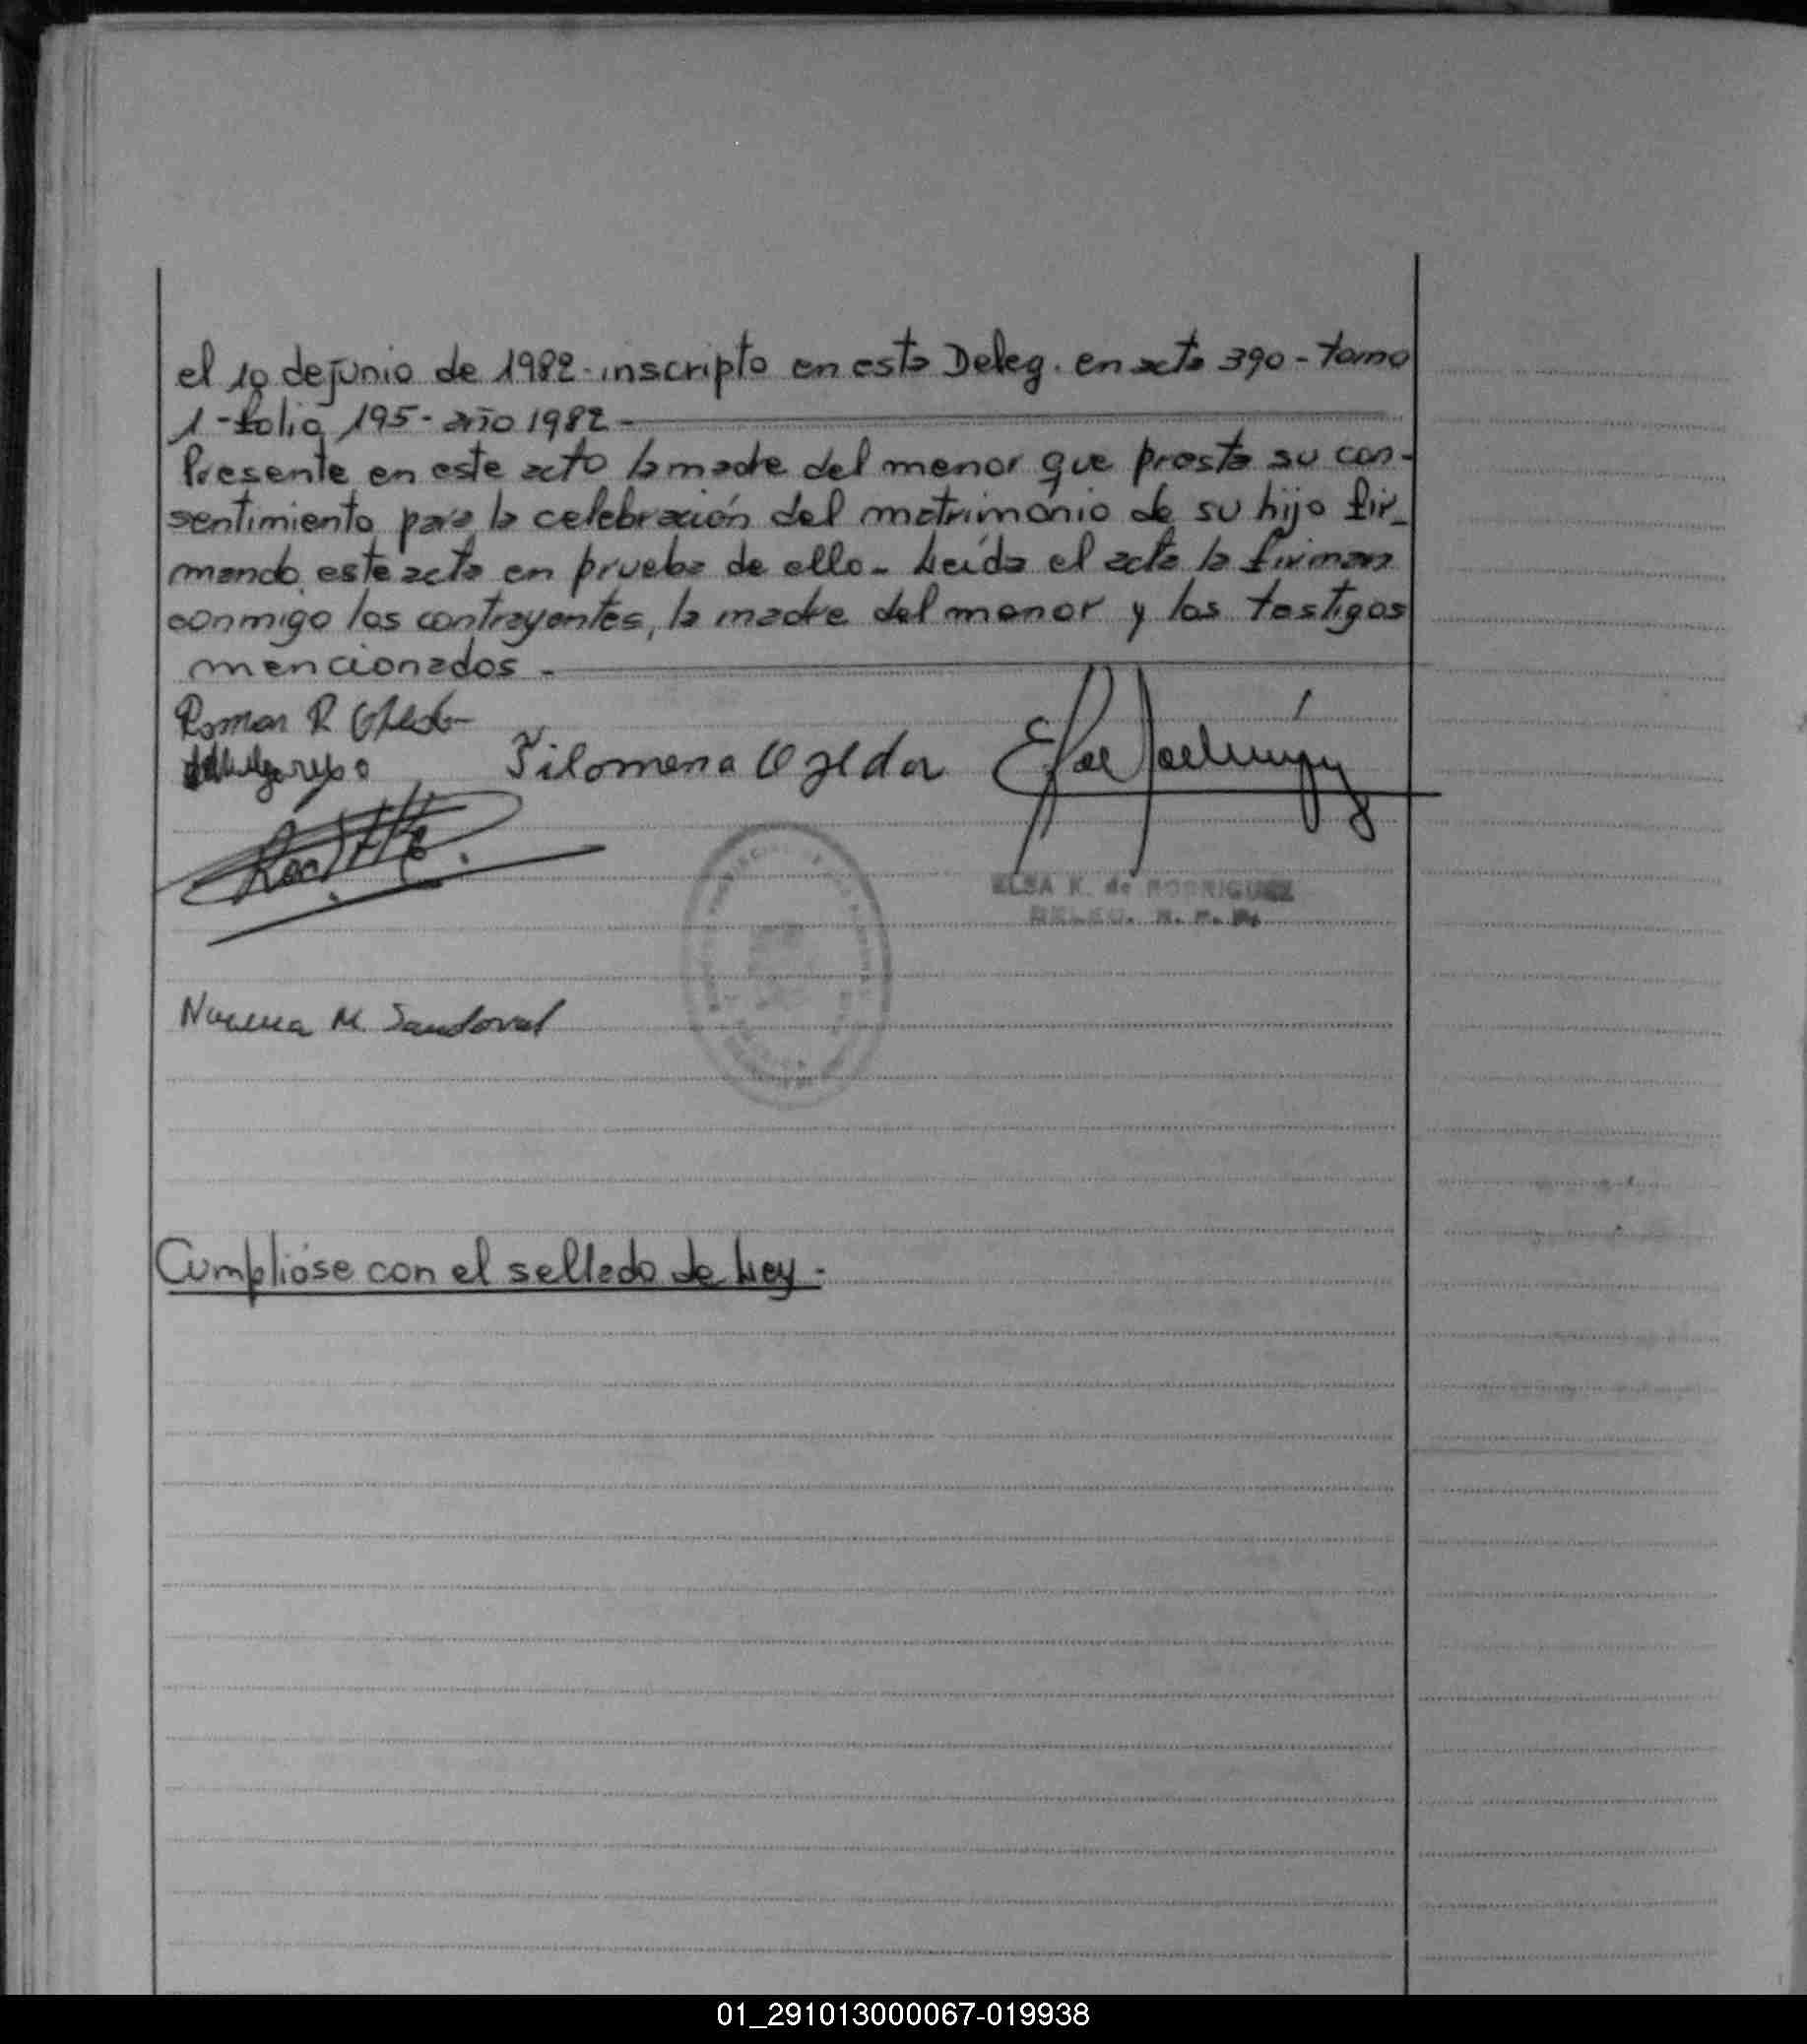 el 10 de junio de 1982-inscripto en esta Deleg. en acta 390-tomo
1-folio 195-año 1982-
Presente en este acto la madre del menor que presta su con-
sentimiento para la celebración del matrimonio de su hijo fir-
mando este acta en prueba de ello- Leída el acta la firman
conmigo los contrayentes, la madre del menor y los testigos
mencionados-
Roman R
Filomena Ojeda
ELSA K. de RODRIGUEZ
DELEG. R. P. P.
M. Sandoval
Cumplióse con el sellado de Ley-
01_291013000067-019938